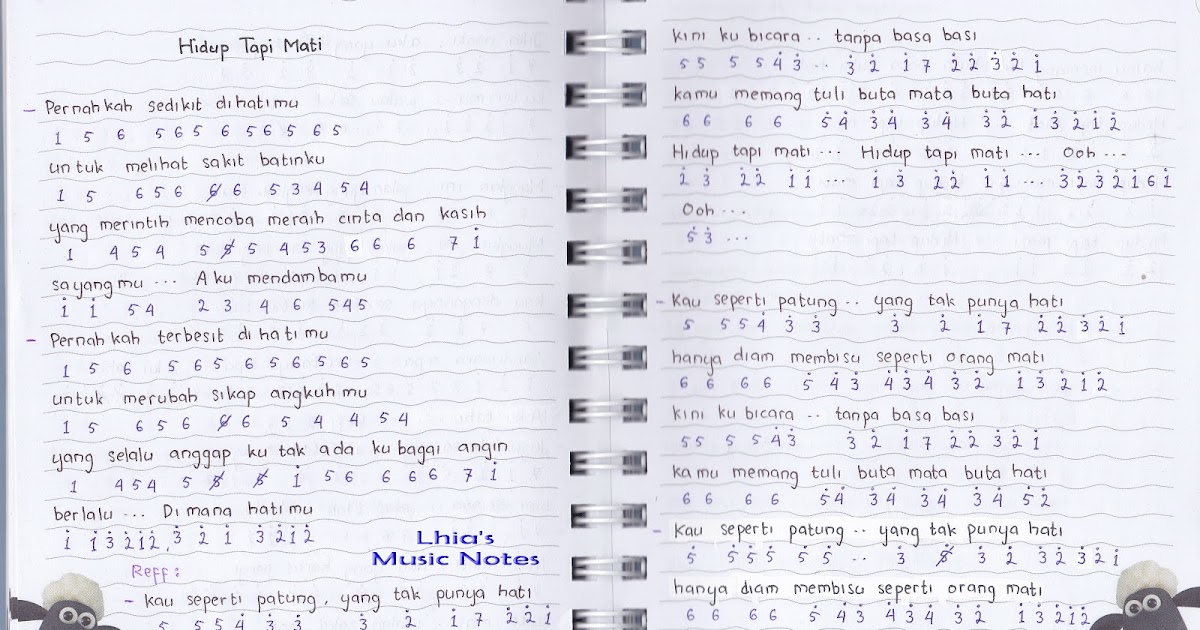 Hidup Tapi Mati
- Pernahkah sedikit dihatimu
1 5 6 5 6 5 6 5 6 5 6 5
untuk melihat sakit batinku
1 5 6 5 6 6̸ 6 5 3 4 5 4
yang merintih mencoba meraih cinta dan kasih
1 4 5 4 5 5̸ 5 4 5 3 6 6 6 7 i
sayangmu ... Aku mendambamu
i i 5 4 2 3 4 6 5 4 5
- Pernahkah terbesit dihatimu
1 5 6 5 6 5 6 5 6 5 6 5
untuk merubah sikap angkuhmu
1 5 6 5 6 6̸ 6 5 4 4 5 4
yang selalu anggap ku tak ada ku bagai angin
1 4 5 4 5 5̸ 5̸ i 5 6 6 6 6 7 i
berlalu ... Dimana hatimu
i i 3̇ 2̇ i 2̇ . 3̇ 2̇ i 3̇ 2̇ i 2̇
Reff :
- kau seperti patung, yang tak punya hati
5 5 5 4̇ 3̇ 3̇ 3̇ 2̇ i 7 2̇ 2̇ i
Lhia's
Music Notes
kini ku bicara .. tanpa basa basi
5 5 5 5 4̇ 3̇ .. 3̇ 2̇ i 7 2̇ 2̇ 3̇ 2̇ i
kamu memang tuli buta mata buta hati
6 6 6 6 5̇ 4̇ 3̇ 4̇ 3̇ 4̇ 3̇ 2̇ i 3̇ 2̇ i 2̇
Hidup tapi mati ... Hidup tapi mati ... Ooh ...
2̇ 3̇ 2̇ 2̇ i i ... i 3̇ 2̇ 2̇ i i .... 3̇ 2̇ 3̇ 2̇ i 6 i
Ooh ...
5̇ 3̇ ...
- Kau seperti patung .. yang tak punya hati
5 5 5 4̇ 3̇ 3̇ 3̇ 2̇ i 7 2̇ 2̇ 3̇ 2̇ i
hanya diam membisu seperti orang mati
6 6 6 6 5̇ 4̇ 3̇ 4̇ 3̇ 4̇ 3̇ 2̇ i 3̇ 2̇ i 2̇
kini ku bicara .. tanpa basa basi
5 5 5 5 4̇ 3̇ 3̇ 2̇ i 7 2̇ 2̇ 3̇ 2̇ i
kamu memang tuli buta mata buta hati
6 6 6 6 5̇ 4̇ 3̇ 4̇ 3̇ 4̇ 3̇ 4̇ 5̇ 2̇
- Kau seperti patung .. yang tak punya hati
5̇ 5̇ 5̇ 5̇ 5̇ 5̇ .. 3̇ 5̸ 3̇ 2̇ 3̇ 2̇ 3̇ 2̇ i
hanya diam membisu seperti orang mati
6 6 6 6 5̇ 4̇ 3̇ 4̇ 3̇ 4̇ 3̇ 2̇ i 3̇ 2̇ i 2̇